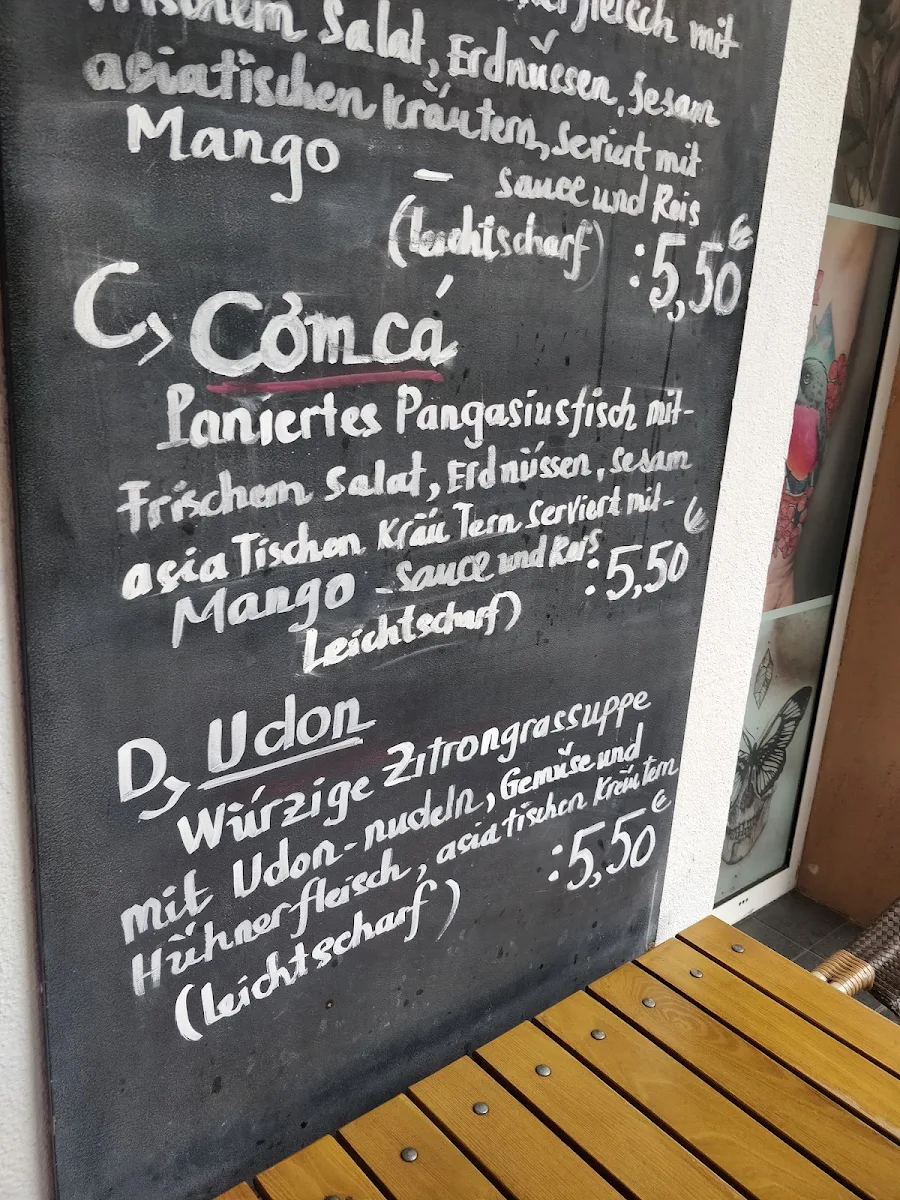 mit
Salat, Erdnüssen, Sesam
asiatischen Kräutern, Serviert mit
Mango -
sauce und Reis
(leichtscharf) :5,50€
C, Cơm cá
Paniertes Pangasiusfisch mit-
Frischem Salat, Erdnüssen, Sesam
asiaTischen KräuTern serviert mit-
Mango - Sauce und Reis :5,50€
Leichtscharf)
D, Udon
Würzige Zitrongrassuppe
mit Udon-nudeln, Gemüse und
Hühnerfleisch, asiatischen Kräutern
(leichtscharf) :5,50€